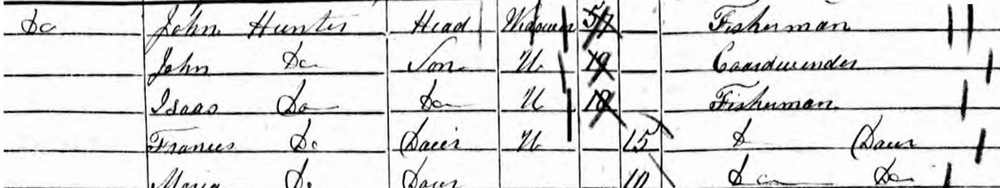 Do John Hunter Head Widower 57 Fisherman
John Do Son U 19 Coardwender
Isaac Do Do U 18 Fisherman
Frances Do Daur U 15 Do Daur
Maria Do Daur 10 Do Do